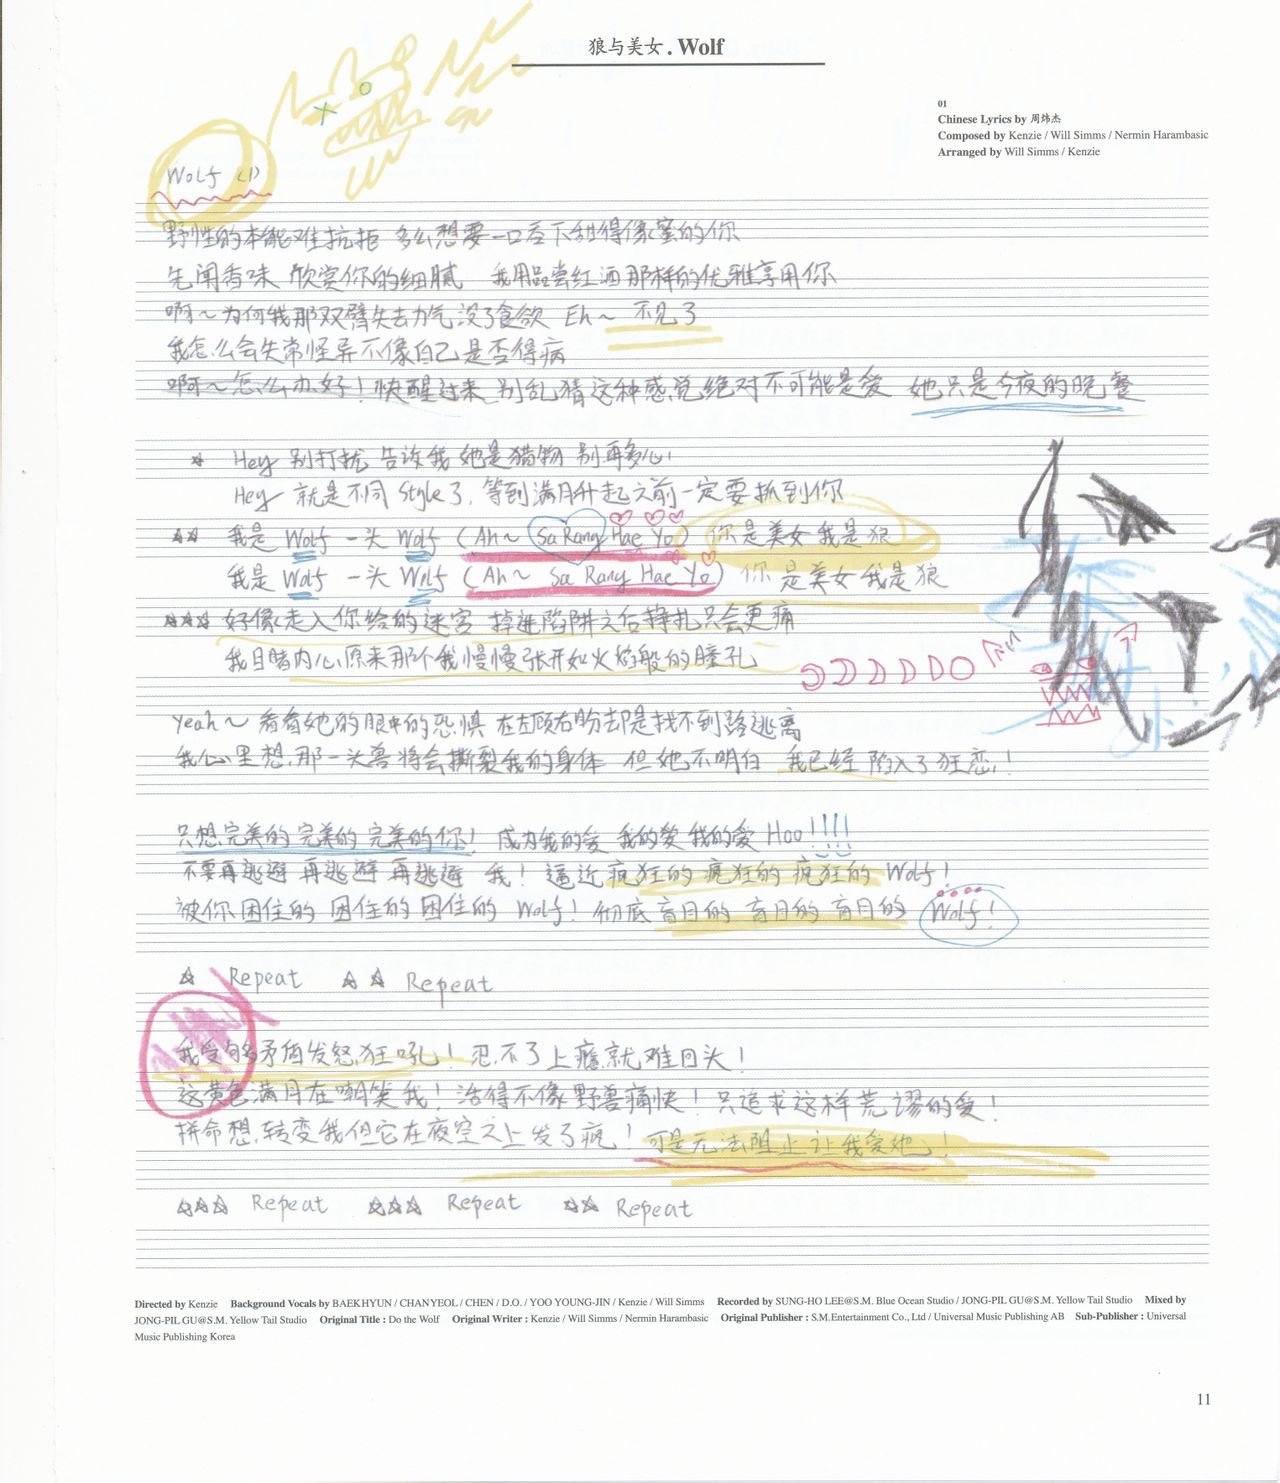 狼与美女 . Wolf
01
Chinese Lyrics by 周炜杰
Composed by Kenzie / Will Simms / Nermin Harambasic
Arranged by Will Simms / Kenzie
Wolf (1)
野性的本能难抗拒 多么想要一口吞下甜得像蜜的你
先闻香味 欣赏你的细腻 我用品尝红酒那样的优雅享用你
啊~为何我那双臂失去力气没了食欲 Eh~ 不见了
我怎么会失常怪异不像自己是否得病
啊~怎么办好! 快醒过来 别乱猜这种感觉绝对不可能是爱 她只是今夜的晚餐
☆ Hey 别打扰 告诉我她是猎物 别再多心
Hey 就是不同 Style了, 等到满月升起之前一定要抓到你
☆☆ 我是 Wolf 一头 Wolf (Ah~ Sa Rang Hae Yo) 你是美女我是狼
我是 Wolf 一头 Wolf (Ah~ Sa Rang Hae Yo) 你是美女我是狼
☆☆☆ 好像走入你给的迷宫 掉进陷阱之后挣扎只会更痛
我目睹内心原来那个我慢慢张开如火焰般的瞳孔
Yeah~ 看着她的眼中的恐惧 在左顾右盼却是找不到路逃离
我心里想,那一头兽将会撕裂我的身体 但她不明白 我已经陷入了狂恋!
只想完美的 完美的 完美的你! 成为我的爱 我的爱 我的爱 Hoo!!!!
不要再逃避 再逃避 再逃避 我! 逼近疯狂的 疯狂的 疯狂的 Wolf!
被你困住的 困住的 困住的 Wolf! 彻底盲目的 盲目的 盲目的 Wolf!
☆ Repeat ☆☆ Repeat
我受够矛盾发怒狂吼! 忍不了上瘾就难回头!
这黄色满月在嘲笑我! 活得不像野兽痛快! 只追求这样荒谬的爱!
拼命想转变我但它在夜空之上发了疯! 可是无法阻止让我爱她!
☆☆☆ Repeat ☆☆☆ Repeat ☆☆ Repeat
Directed by Kenzie Background Vocals by BAEKHYUN / CHANYEOL / CHEN / D.O. / YOO YOUNG-JIN / Kenzie / Will Simms Recorded by SUNG-HO LEE@S.M. Blue Ocean Studio / JONG-PIL GU@S.M. Yellow Tail Studio Mixed by
JONG-PIL GU@S.M. Yellow Tail Studio Original Title : Do the Wolf Original Writer : Kenzie / Will Simms / Nermin Harambasic Original Publisher : S.M.Entertainment Co., Ltd / Universal Music Publishing AB Sub-Publisher : Universal
Music Publishing Korea
11